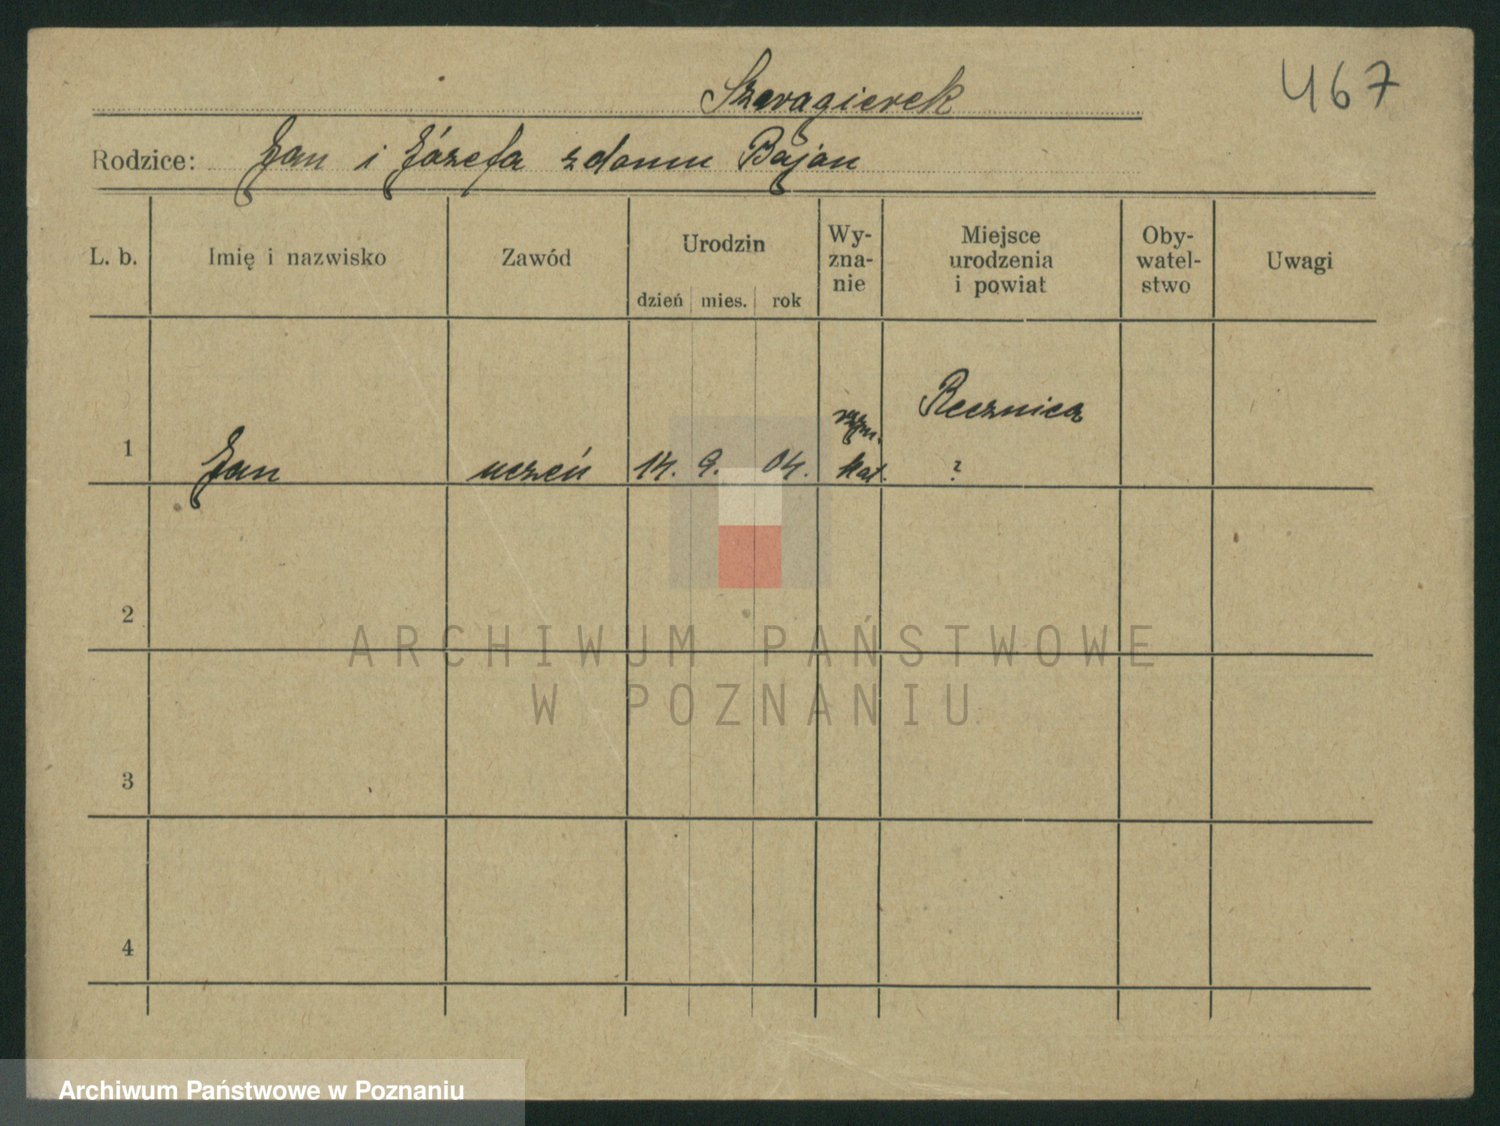 467
Szeragierek
Rodzice: Jan i Józefa z domu Bajan
L. b. Imię i nazwisko Zawód Urodzin dzień mies. rok Wy-zna-nie Miejsce urodzenia i powiat Oby-watel-stwo Uwagi
1 Jan uczeń 14. 9. 04. rzym. kat. Recznica ?
2
3
4
ARCHIWUM PAŃSTWOWE
W POZNANIU
Archiwum Państwowe w Poznaniu